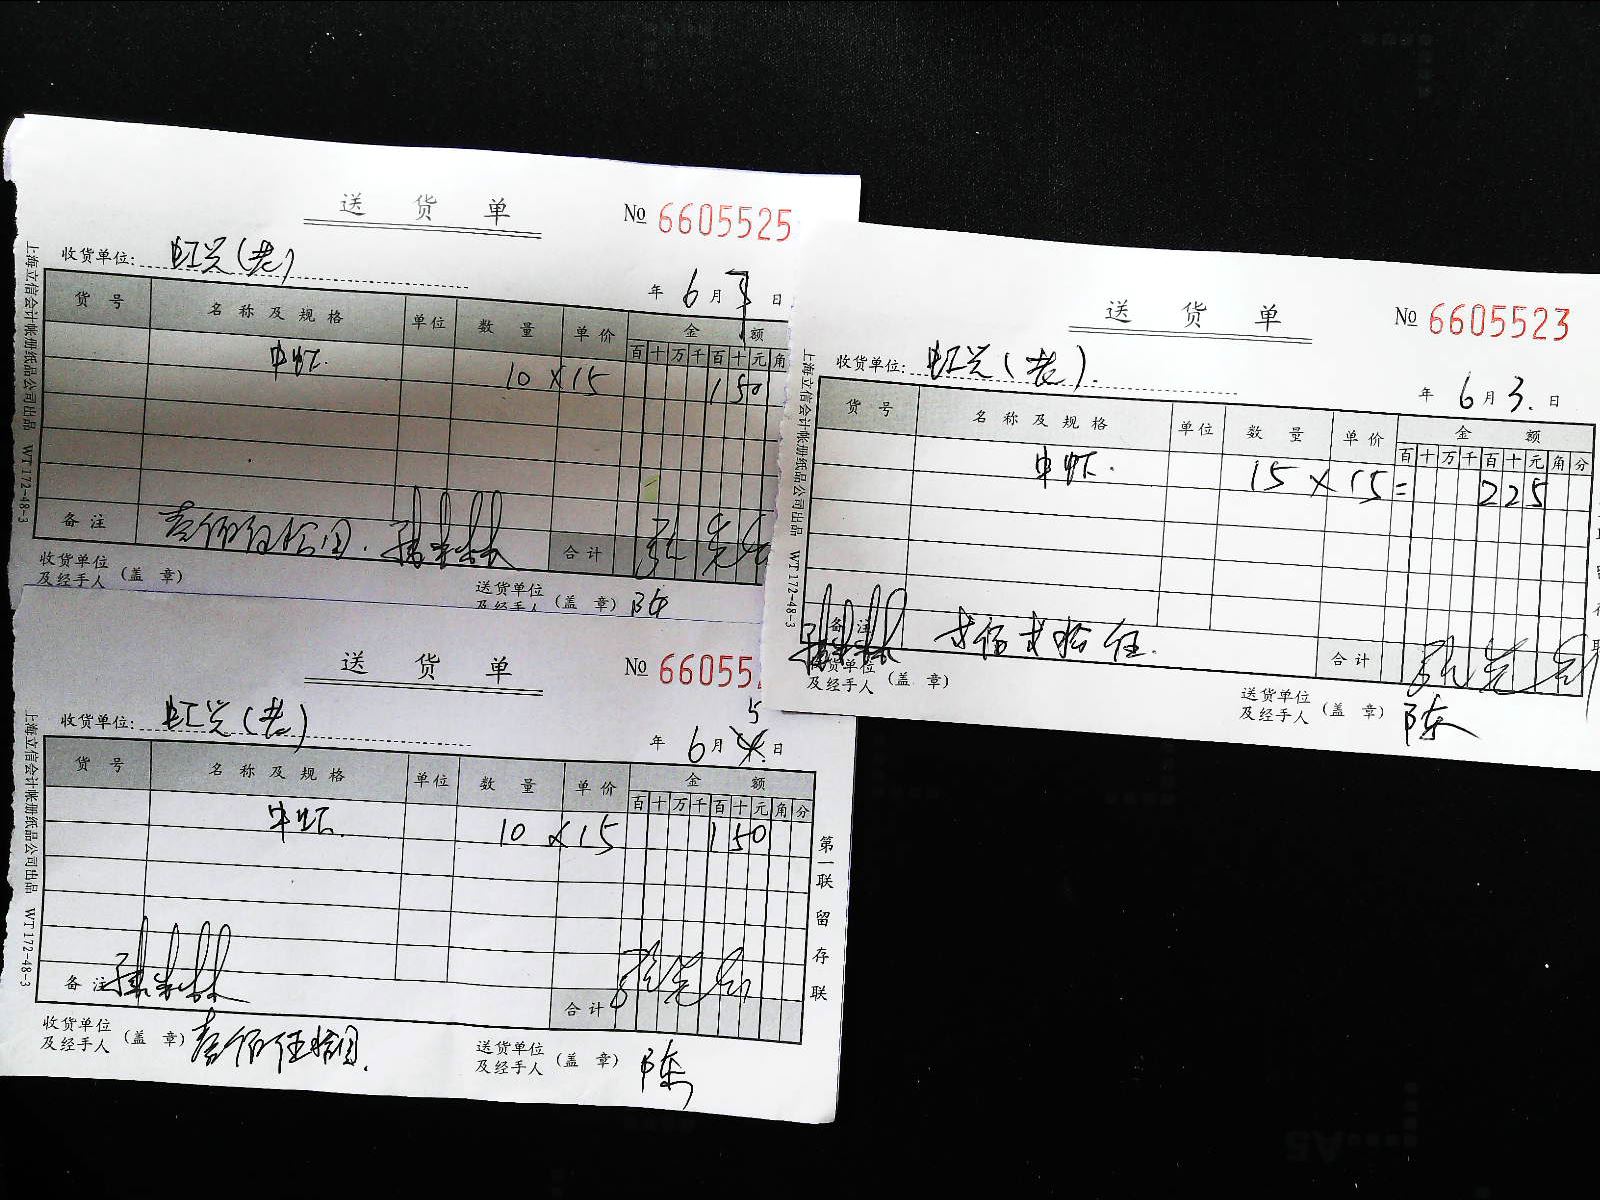 送 货 单
№ 6605525
收货单位: 虹兴(老)
年 6 月 日
货 号 名 称 及 规 格 单位 数 量 单 价 金 额
百 十 万 千 百 十 元 角
中虾. 10 × 15 150
备 注 壹佰伍拾圆.
合 计
收货单位
及经手人 (盖 章)
送货单位
及经手人 (盖 章) 陈
上海立信会计帐册纸品公司出品 WT 172-48-3
送 货 单
№ 6605523
收货单位: 虹兴(老).
年 6 月 3. 日
货 号 名 称 及 规 格 单位 数 量 单 价 金 额
百 十 万 千 百 十 元 角 分
中虾. 15 × 15 = 225
备 注 贰佰贰拾伍.
合 计
收货单位
及经手人 (盖 章)
送货单位
及经手人 (盖 章) 陈
上海立信会计帐册纸品公司出品 WT 172-48-3
送 货 单
№ 66055
收货单位: 虹兴(老)
年 6 月 5 日
货 号 名 称 及 规 格 单位 数 量 单 价 金 额
百 十 万 千 百 十 元 角 分
中虾. 10 × 15 150
备 注
合 计
收货单位
及经手人 (盖 章) 壹佰伍拾圆.
送货单位
及经手人 (盖 章) 陈
第一联 留存联
上海立信会计帐册纸品公司出品 WT 172-48-3